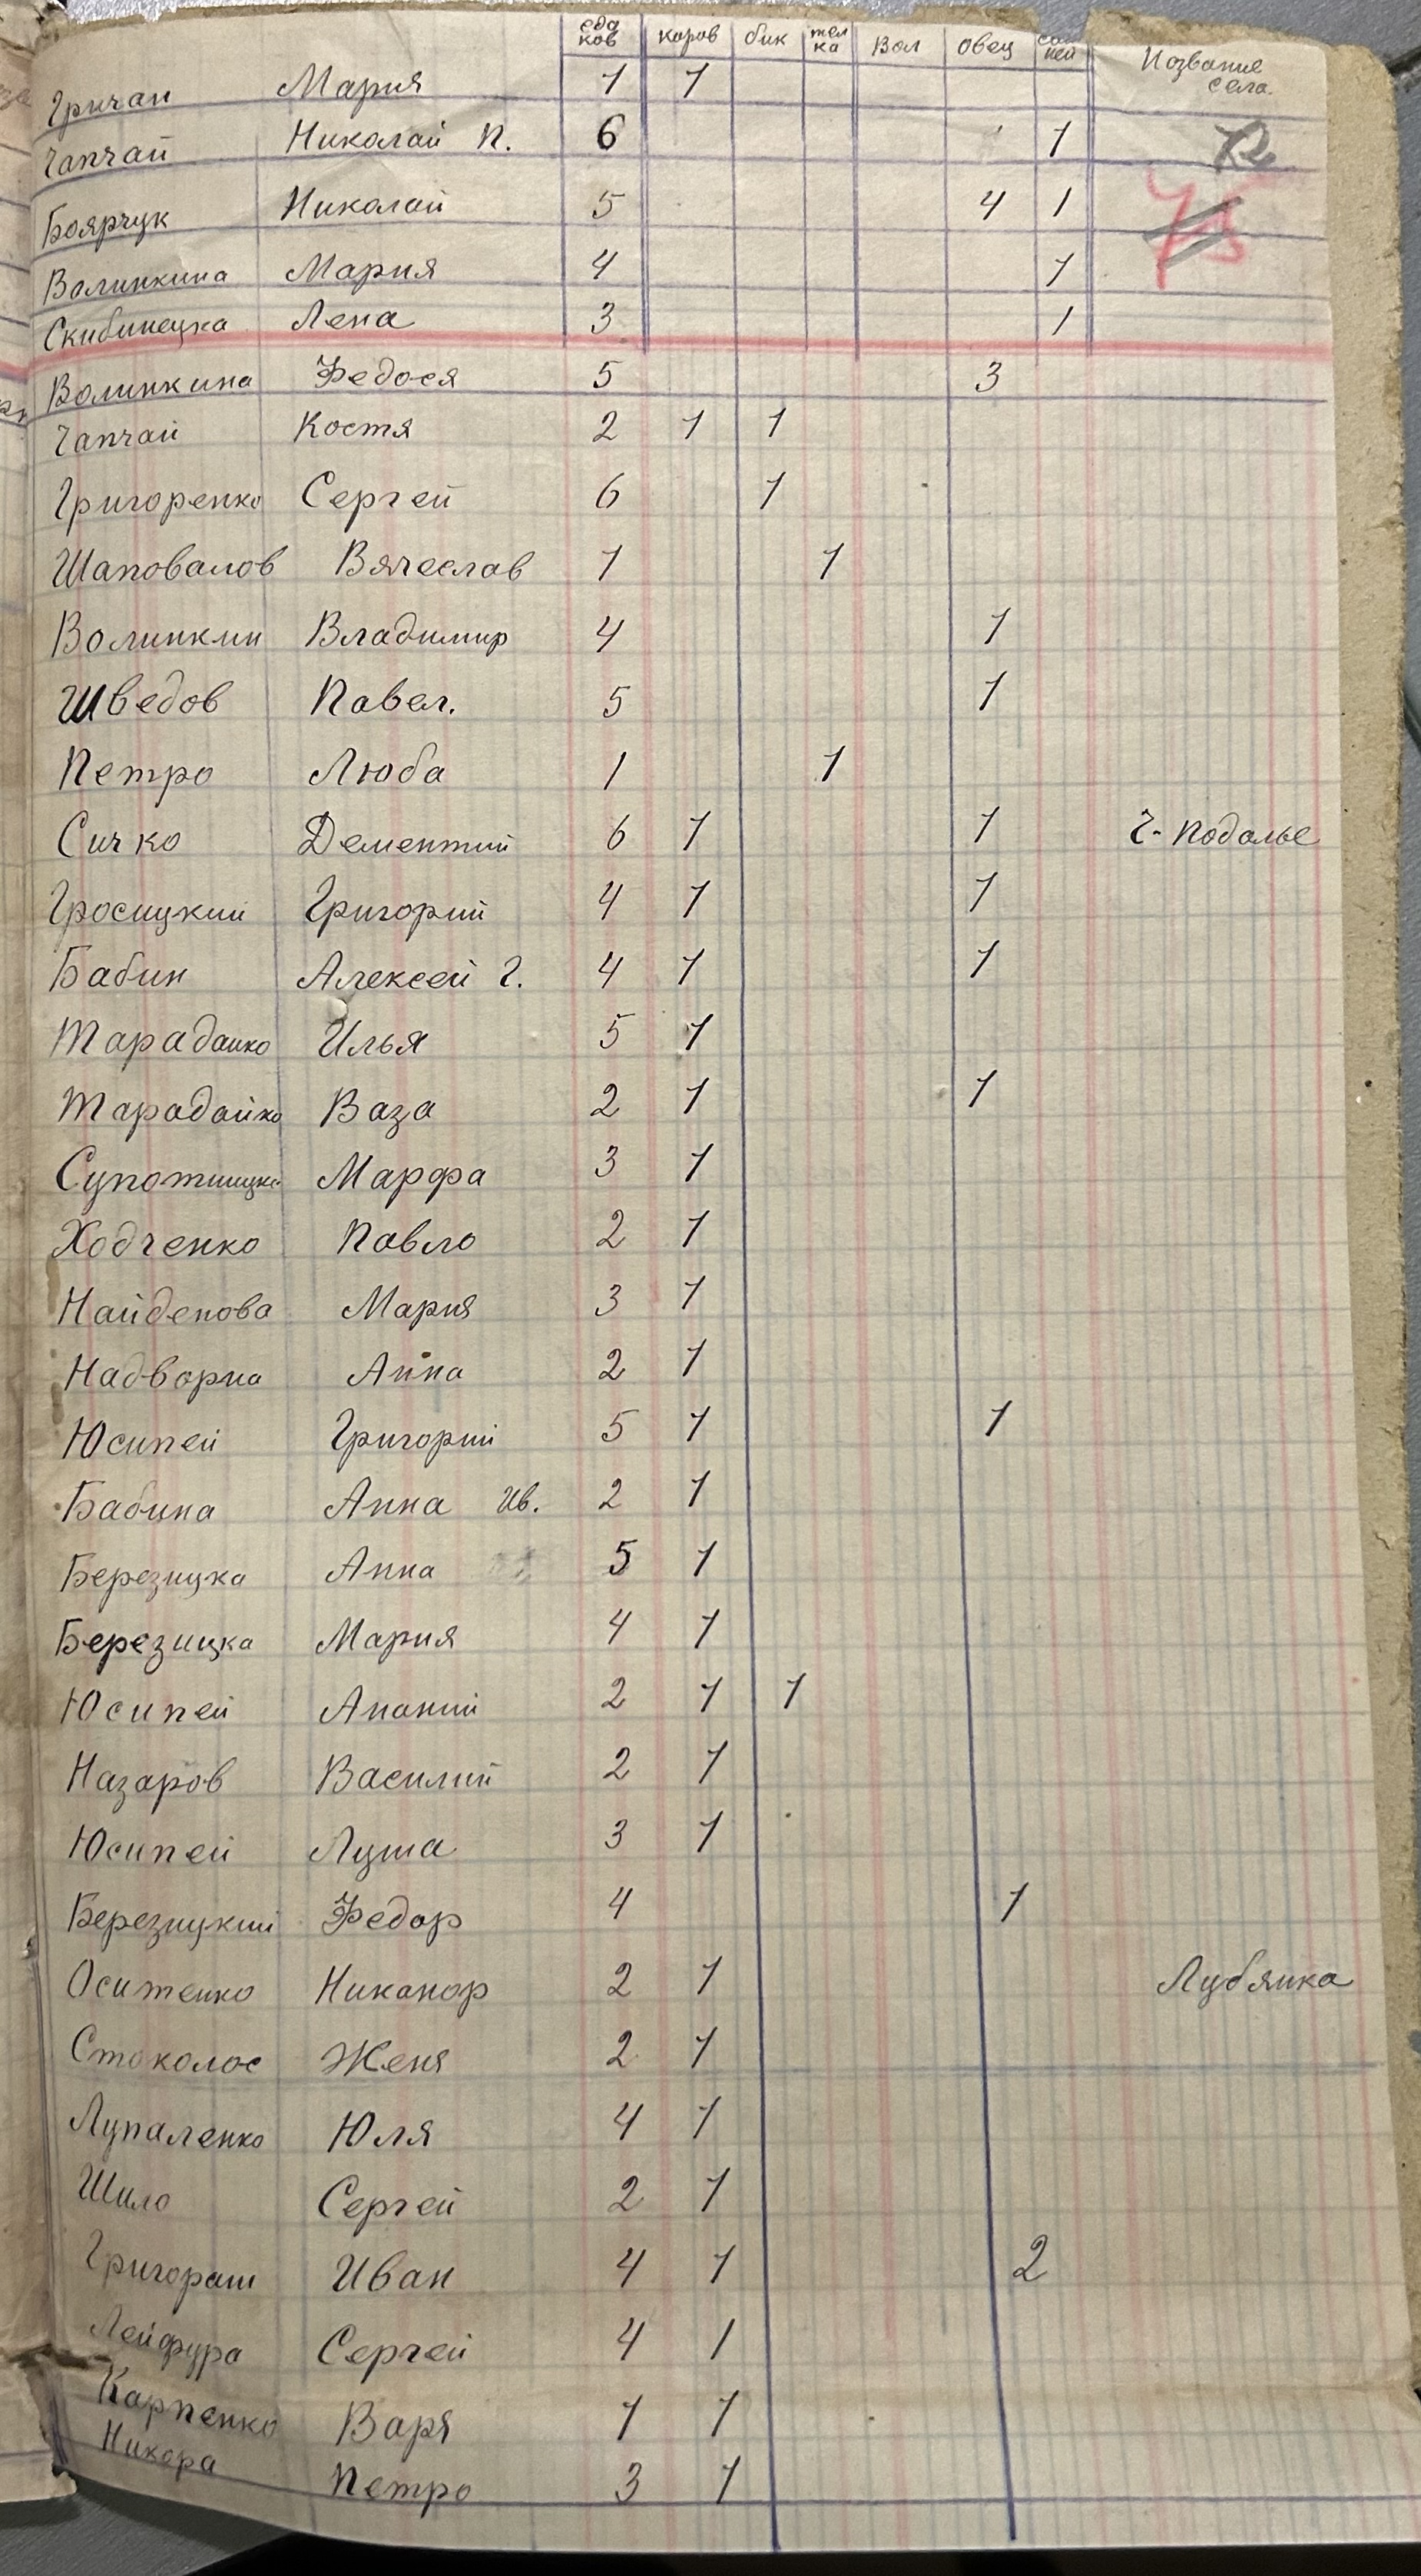 едаков коров бик телка вол овец свиней Название села.
Гричан Мария 1 1
Чапчай Николай П. 6 1 72
Боярчук Николай 5 4 1 75
Волинкина Мария 4 1
Скибинецка Лена 3 1
Волинкина Федося 5 3
Чапчай Костя 2 1 1
Григоренко Сергей 6 1
Шаповалов Вячеслав 1 1
Волинкин Владимир 4 1
Шведов Павел. 5 1
Петро Люба 1 1
Сичко Дементий 6 1 1 Ч-Подолье
Гросицкий Григорий 4 1 1
Бабин Алексей Г. 4 1 1
Тарадайко Илья 5 1
Тарадайко Ваза 2 1 1
Марфа 3 1
Ходченко Павло 2 1
Найденова Мария 3 1
Надворна Анна 2 1
Юсипей Григорий 5 1 1
Бабина Анна Ив. 2 1
Березицка Анна 5 1
Березицка Мария 4 1
Юсипей Ананий 2 1 1
Назаров Василий 2 1
Юсипей Луша 3 1
Березицкий Федор 4 1
Оситенко Никанор 2 1 Лубянка
Стоколос Женя 2 1
Лупаленко Юля 4 1
Шило Сергей 2 1
Григораш Иван 4 1 2
Лейфура Сергей 4 1
Карпенко Варя 1 1
Никора Петро 3 1